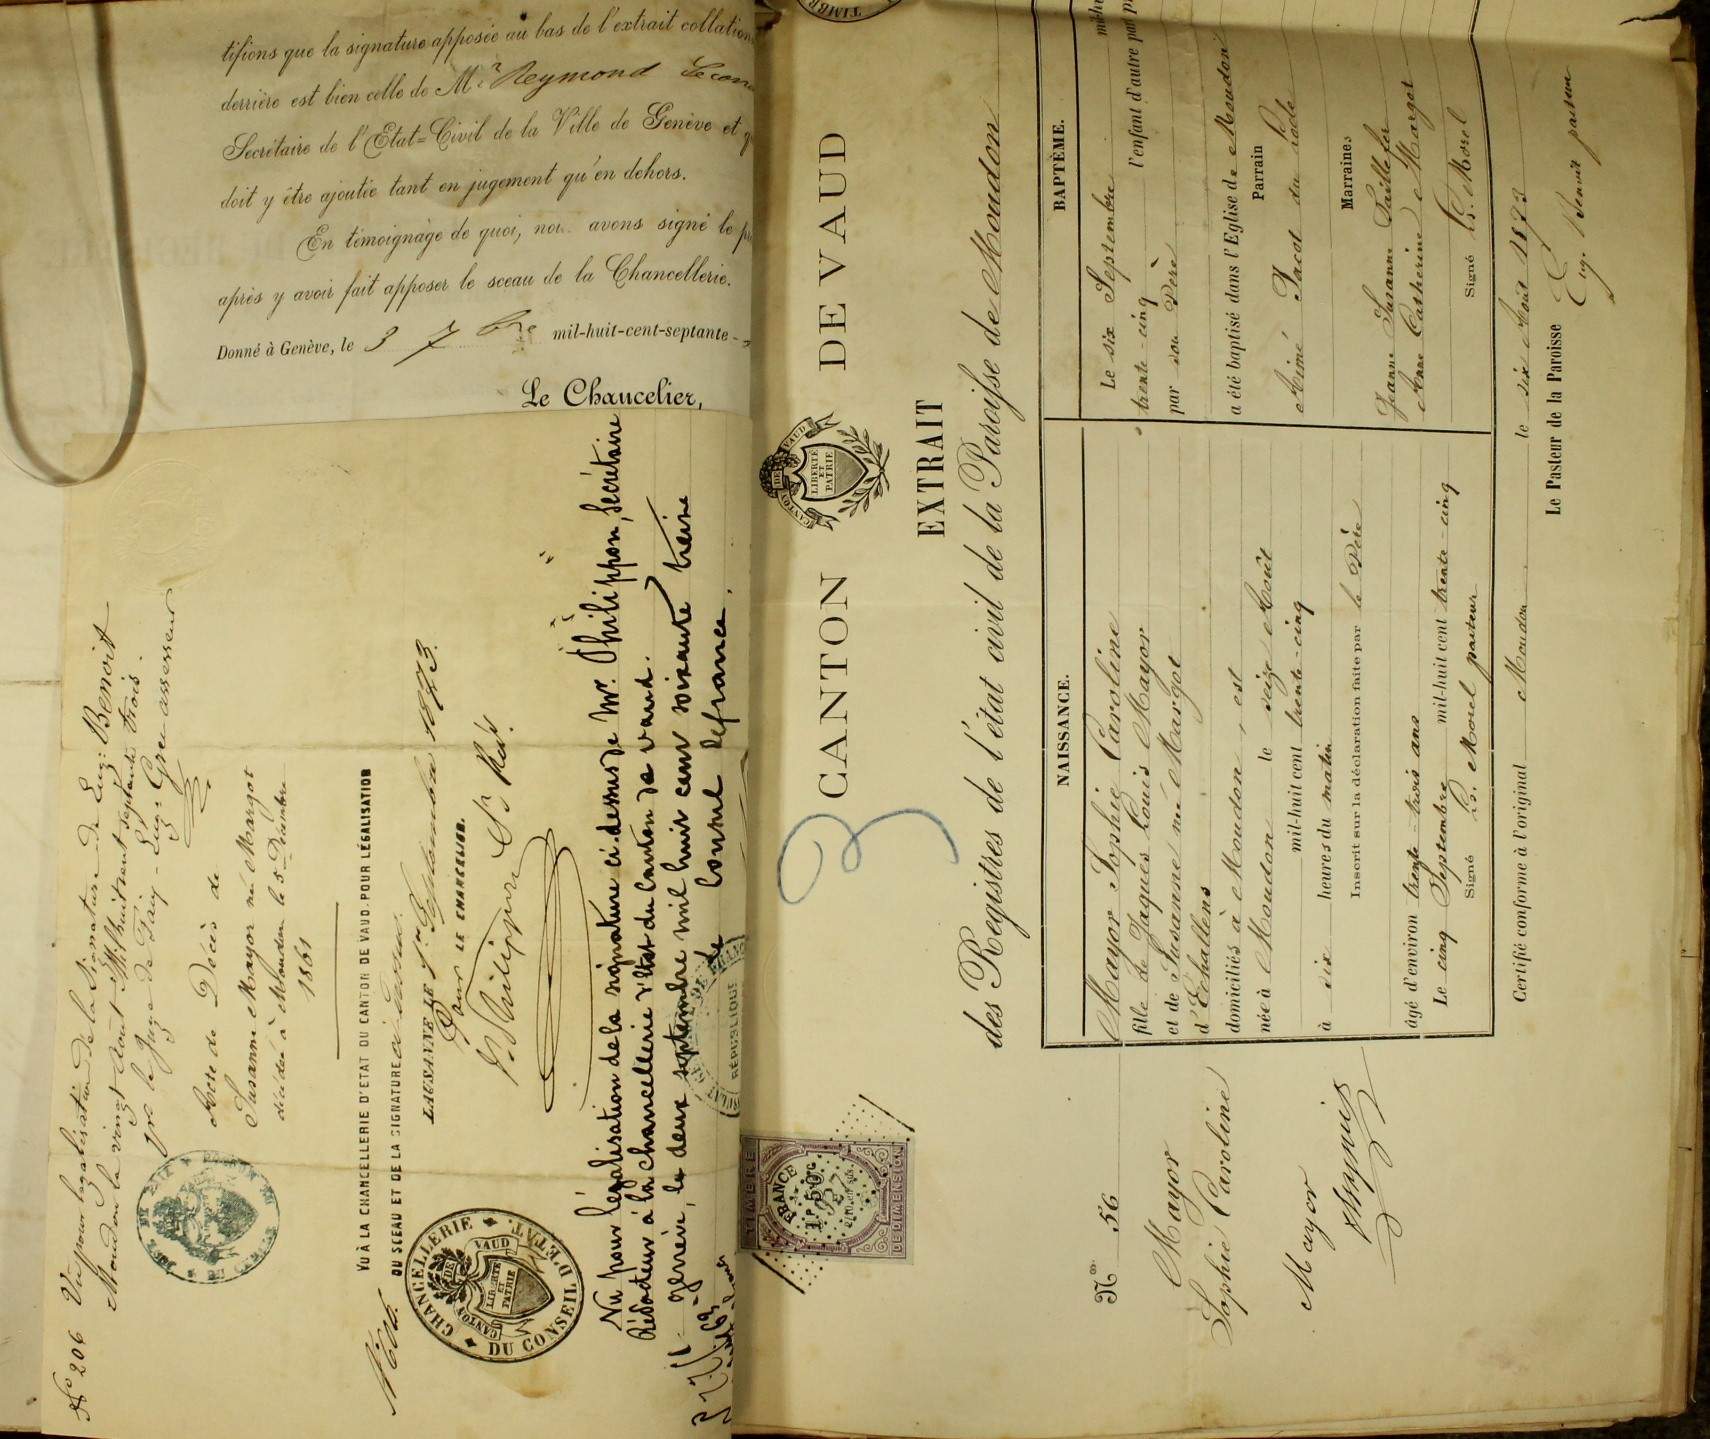 tifions que la signature apposée au bas de l'extrait collation
derrière est bien celle de Mr. Reymond
Secrétaire de l'Etat=Civil de la Ville de Genève et q
doit y être ajoutée tant en jugement qu'en dehors.
En témoignage de quoi, nou avons signé le p
après y avoir fait apposer le sceau de la Chancellerie.
Donné à Genève, le 3 7bre mil-huit-cent-septante-
Le Chancelier,
No 206 Vu pour légalisation de la Signature de Eug: Benoit
Moudon le vingt Août Mil huit cent septante trois.
pr le Juge de Paix
assesseur
Acte de Décès de
Susanne Mayor né Margot
décédée à Moudon le 5 Décembre
1861
VU À LA CHANCELLERIE D'ETAT DU CANTON DE VAUD. POUR LÉGALISATION
DU SCEAU ET DE LA SIGNATURE ci-dessus.
LAUSANNE LE 1er Septembre 1873.
Pour LE CHANCELIER.
Philippon
CHANCELLERIE DU CONSEIL D'ETAT.
CANTON DE VAUD
LIBERTÉ ET PATRIE
Vu pour légalisation de la signature ci-dessus de Mr. Philippon, Secrétaire
Rédacteur à la Chancellerie d'Etat du Canton de Vaud.
Genève, le deux septembre mil huit cent soixante treize
le Consul de france.
RÉPUBLIQUE
TIMBRE
FRANCE
50c
DE DIMENSION
TIMBR
CANTON DE VAUD
CANTON DE VAUD
LIBERTÉ ET PATRIE
EXTRAIT
des Registres de l'état civil de la Paroisse de Moudon
3
No. 56
Mayor
Sophie Caroline
Mayor
NAISSANCE.
Mayor Sophie Caroline
fille de Jaques Louis Mayor
et de Susanne né Margot
d'Echallens
domiciliés à Moudon, est
née à Moudon le seize Août
mil-huit cent trente-cinq
à six heures du matin
Inscrit sur la déclaration faite par le Père
âgé d'environ trente-trois ans
Le cinq Septembre mil-huit cent trente-cinq
Signé Ls. Morel pasteur
BAPTÊME.
Le six Septembre
trente-cinq l'enfant d'autre par
par son Père
a été baptisé dans l'Eglise de Moudon
Parrain
Aimé Jacot du Locle
Marraines
Jeanne Susanne Taillefer
Anne Catherine Margot
Signé Ls. Morel
Certifié conforme à l'original Moudon le six Août 1873
Le Pasteur de la Paroisse Eug. Benoit pasteur